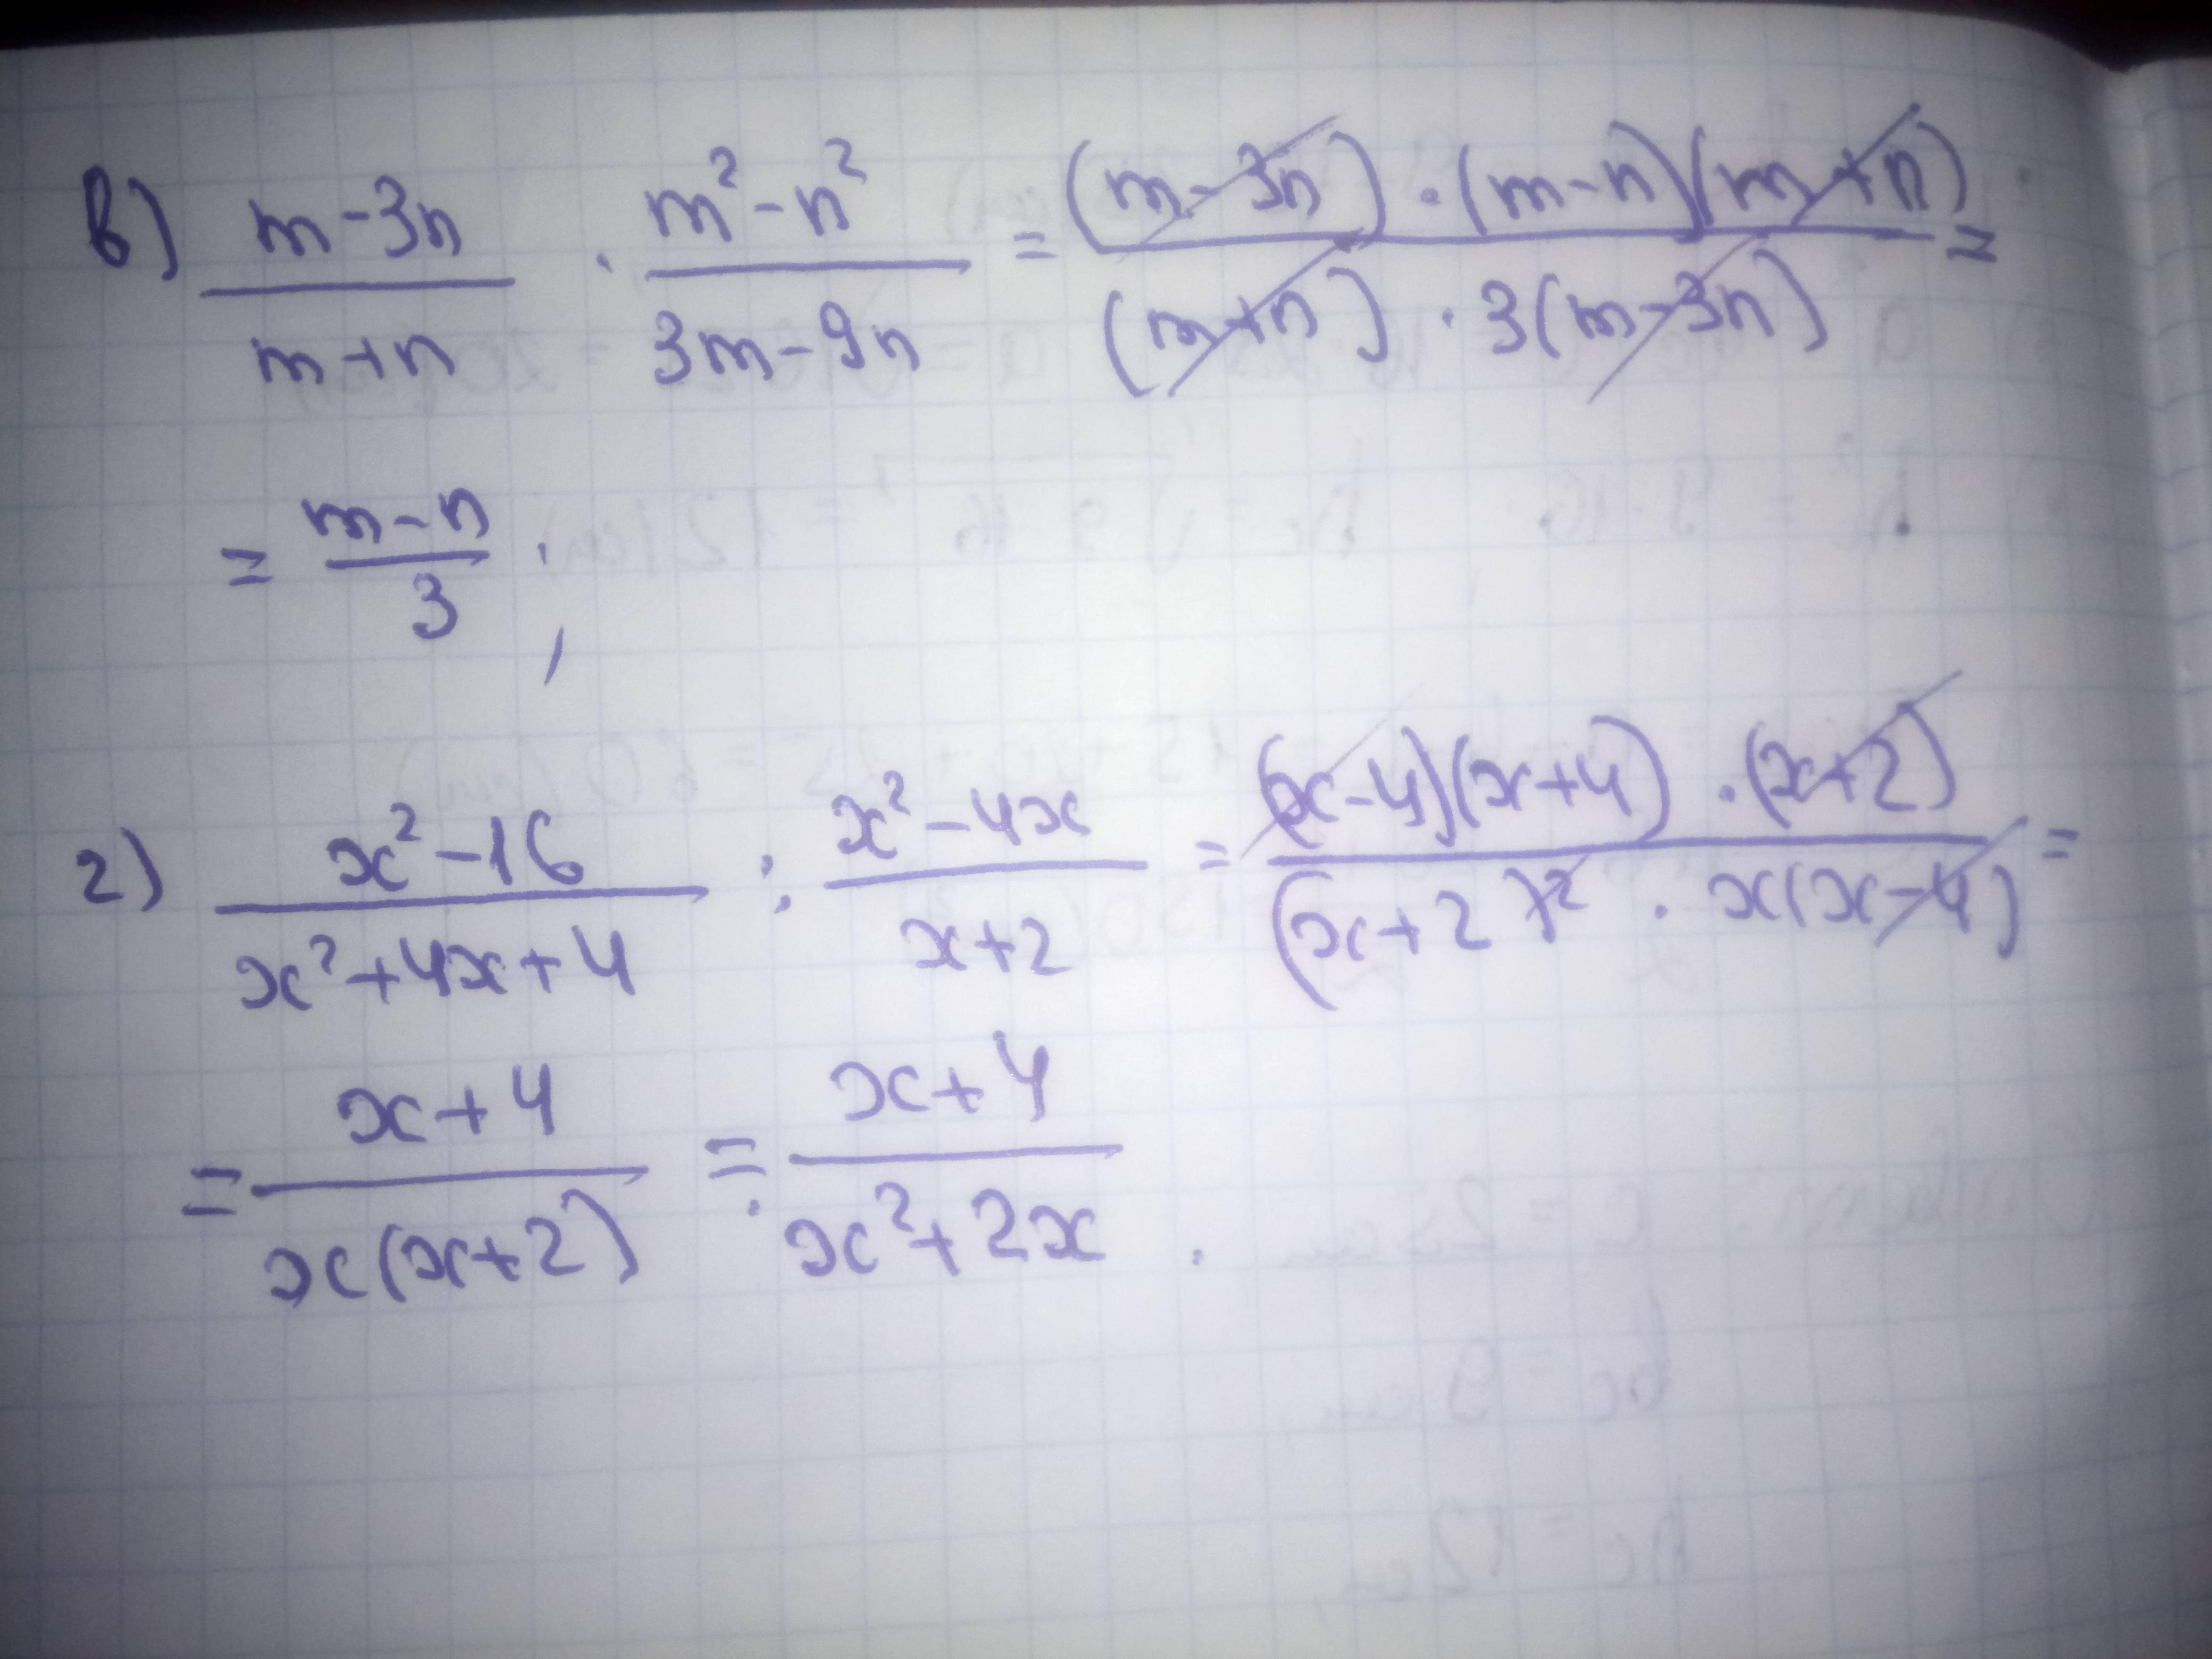 в) (m-3n)/(m+n) · (m²-n²)/(3m-9n) = ((m-3n)·(m-n)(m+n))/((m+n)·3(m-3n)) =
= (m-n)/3 ;
г) (x²-16)/(x²+4x+4) : (x²-4x)/(x+2) = ((x-4)(x+4)·(x+2))/((x+2)²·x(x-4)) =
= (x+4)/(x(x+2)) = (x+4)/(x²+2x) .